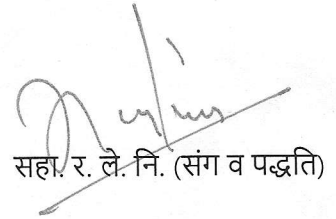 सहा. र. ले. नि. (संग व पद्धति)